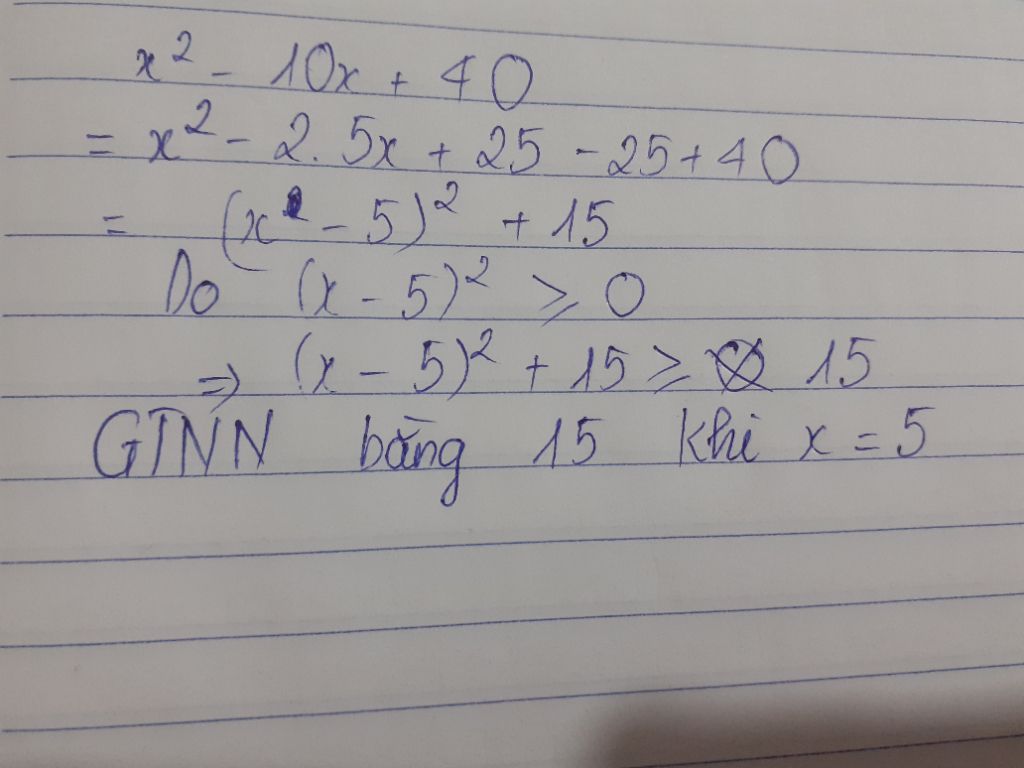 x² - 10x + 40
= x² - 2. 5x + 25 - 25 + 40
= (x - 5)² + 15
Do (x - 5)² ⩾ 0
⇒ (x - 5)² + 15 ⩾ 15
GTNN bằng 15 khi x = 5